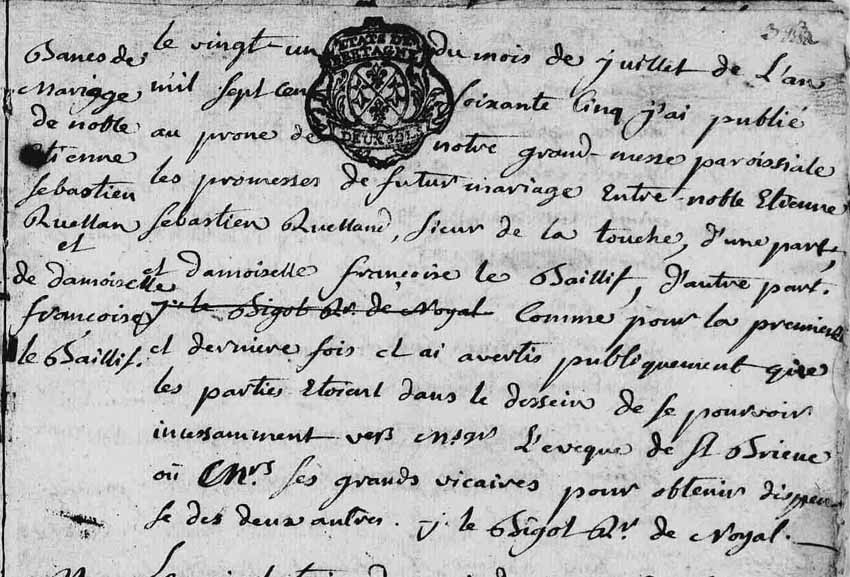 Banes de
Mariage
de noble
Etienne
sebastien
Ruellan
et
de damoiselle
françoise
le Baillif.
343
ETATS DE
BRETAGNE
DEUX SOLS
le vingt un du mois de juillet de L'an
mil sept cen soixante Cinq j'ai publié
au prone de notre grand messe paroissiale
les promesses de futur mariage Entre noble Etienne
sebastien Ruelland, sieur de la touche, d'une part,
et damoiselle françoise le Baillif, d'autre part.
y. le Bigot Rr de Noyal Comme pour la premiere
et derniere fois et ai avertis publiquement que
les parties Etoient dans le dessein de se pourvoir
incessamment vers Msgr L'eveque de St Brieuc
où Mrs ses grands vicaires pour obtenir dispen
se des deux autres. y. le Bigot Rr. de Noyal.